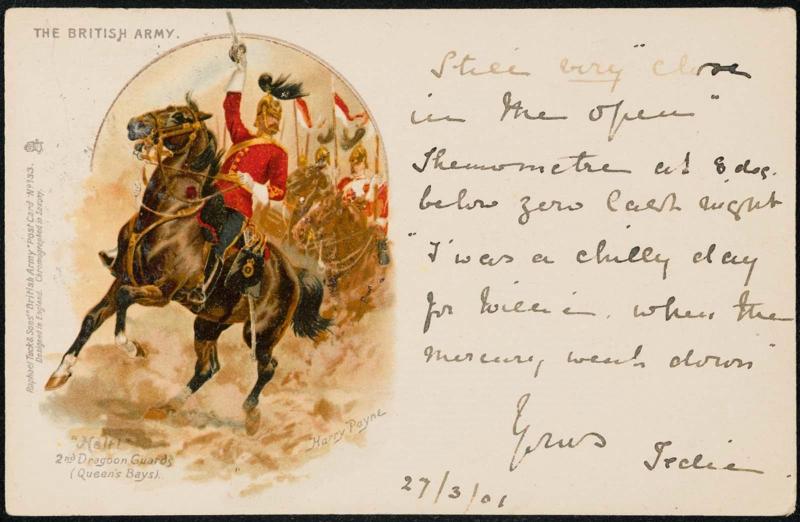 THE BRITISH ARMY.
Raphael Tuck & Sons' "British Army" Post Card No 133.
Designed in England. Chromographed in Saxony.
"Halt!"
2nd Dragoon Guards
(Queen's Bays).
Harry Payne
Still very "close
in the open"
Themometre at 8 deg.
below zero last night
"T'was a chilly day
for Willie. when the
mercury went down"
Yours
27/3/01